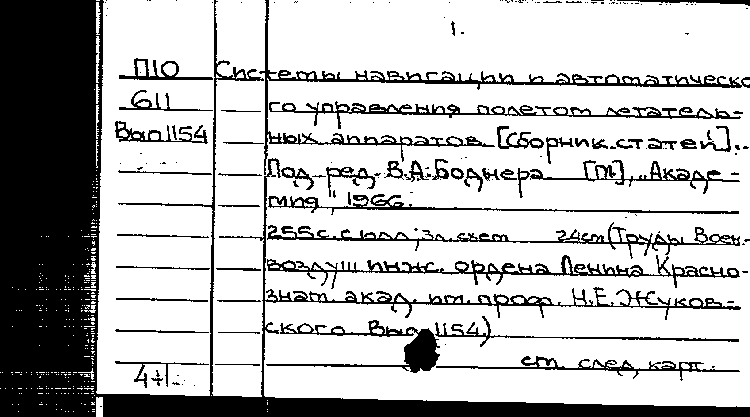 1.
П10 Системы навигации и автоматическо
611 го управления полетом летатель-
Вып1154 ных аппаратов. [Сборник.статей]..
Под ред. В.А.Боднера. [М], „Акаде-
мия", 1966.
255с.с илл; эл.схем 24см(Труды Воен.-
воздуш инж. ордена Ленина Красно-
знам. акад. им. проф. Н.Е.Жуков-
ского Вып 1154.)
см. след, карт.
4+1.